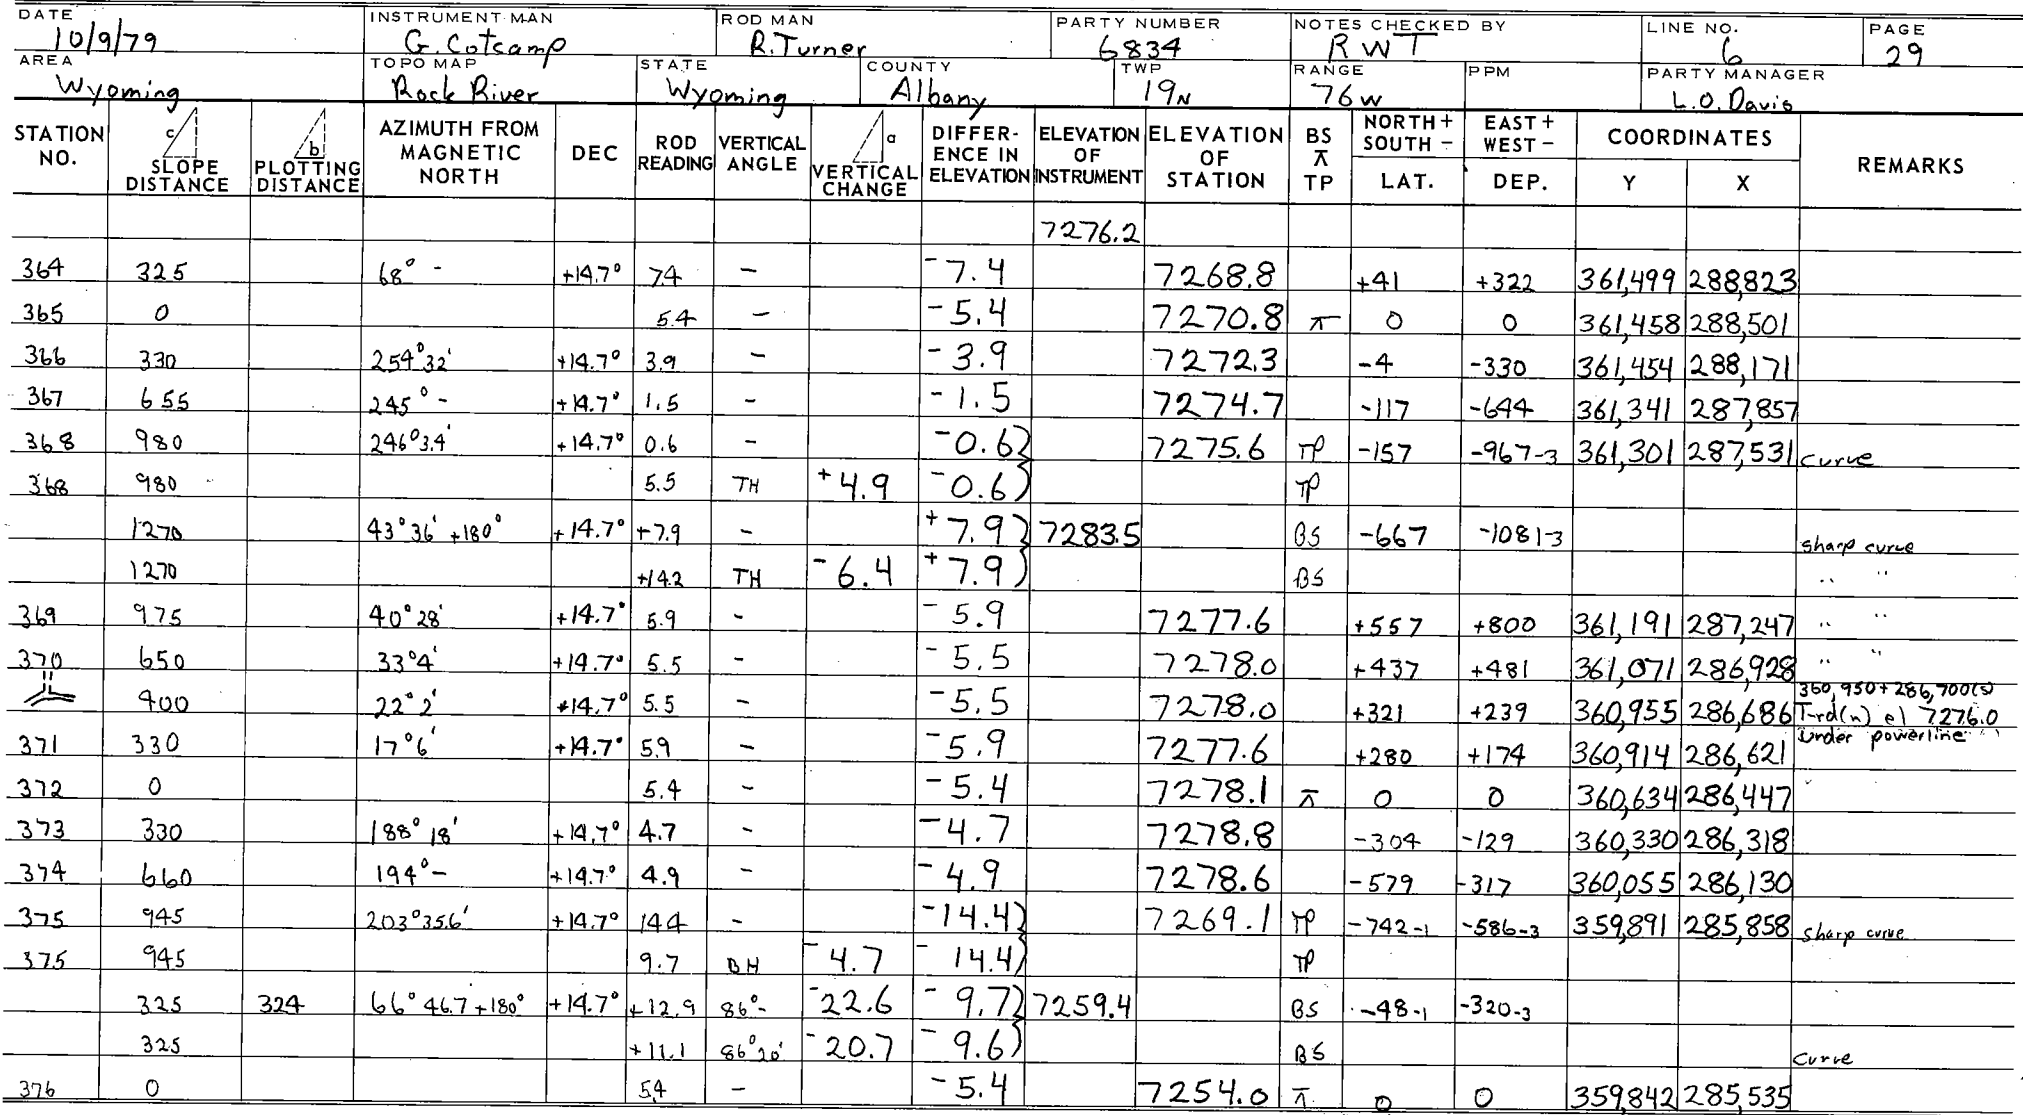 DATE INSTRUMENT MAN ROD MAN PARTY NUMBER NOTES CHECKED BY LINE NO. PAGE
10/9/79 G. Cotcamp R. Turner 6834 RWT 6 29
AREA TOPO MAP STATE COUNTY TWP RANGE PPM PARTY MANAGER
Wyoming Rock River Wyoming Albany 19N 76W L.O. Davis
STATION NO. c SLOPE DISTANCE b PLOTTING DISTANCE AZIMUTH FROM MAGNETIC NORTH DEC ROD READING VERTICAL ANGLE a VERTICAL CHANGE DIFFERENCE IN ELEVATION ELEVATION OF INSTRUMENT ELEVATION OF STATION BS ⊼ TP NORTH + SOUTH - LAT. EAST + WEST - DEP. COORDINATES Y X REMARKS
7276.2
364 325 68° - +14.7° 74 - -7.4 7268.8 +41 +322 361,499 288,823
365 0 5.4 - -5.4 7270.8 ⊼ 0 0 361,458 288,501
366 330 254°32' +14.7° 3.9 - -3.9 7272.3 -4 -330 361,454 288,171
367 655 245° - +14.7° 1.5 - -1.5 7274.7 -117 -644 361,341 287,857
368 980 246°34' +14.7° 0.6 - -0.6} 7275.6 TP -157 -967-3 361,301 287,531 curve
368 980 5.5 TH +4.9 -0.6) TP
1270 43°36' +180° +14.7° +7.9 - +7.9} 7283.5 BS -667 -1081-3 sharp curve
1270 +14.2 TH -6.4 +7.9) BS " "
369 975 40°28' +14.7° 5.9 - -5.9 7277.6 +557 +800 361,191 287,247 " "
370 650 33°4' +14.7° 5.5 - -5.5 7278.0 +437 +481 361,071 286,928 " "
360,950+286,700(s)
400 22°2' +14.7° 5.5 - -5.5 7278.0 +321 +239 360,955 286,686 T-rd(n) el 7276.0
under powerline
371 330 17°6' +14.7° 5.9 - -5.9 7277.6 +280 +174 360,914 286,621
372 0 5.4 - -5.4 7278.1 ⊼ 0 0 360,634 286,447
373 330 188°18' +14.7° 4.7 - -4.7 7278.8 -304 -129 360,330 286,318
374 660 194° - +14.7° 4.9 - -4.9 7278.6 -579 -317 360,055 286,130
375 945 203°35.6' +14.7° 144 - -14.4} 7269.1 TP -742-1 -586-3 359,891 285,858 sharp curve
375 945 9.7 BH -4.7 -14.4) TP
325 324 66°46.7 +180° +14.7° +12.9 86° - -22.6 -9.7} 7259.4 BS -48-1 -320-3
325 +11.1 86°20' -20.7 -9.6) BS curve
376 0 54 - -5.4 7254.0 ⊼ 0 0 359,842 285,535